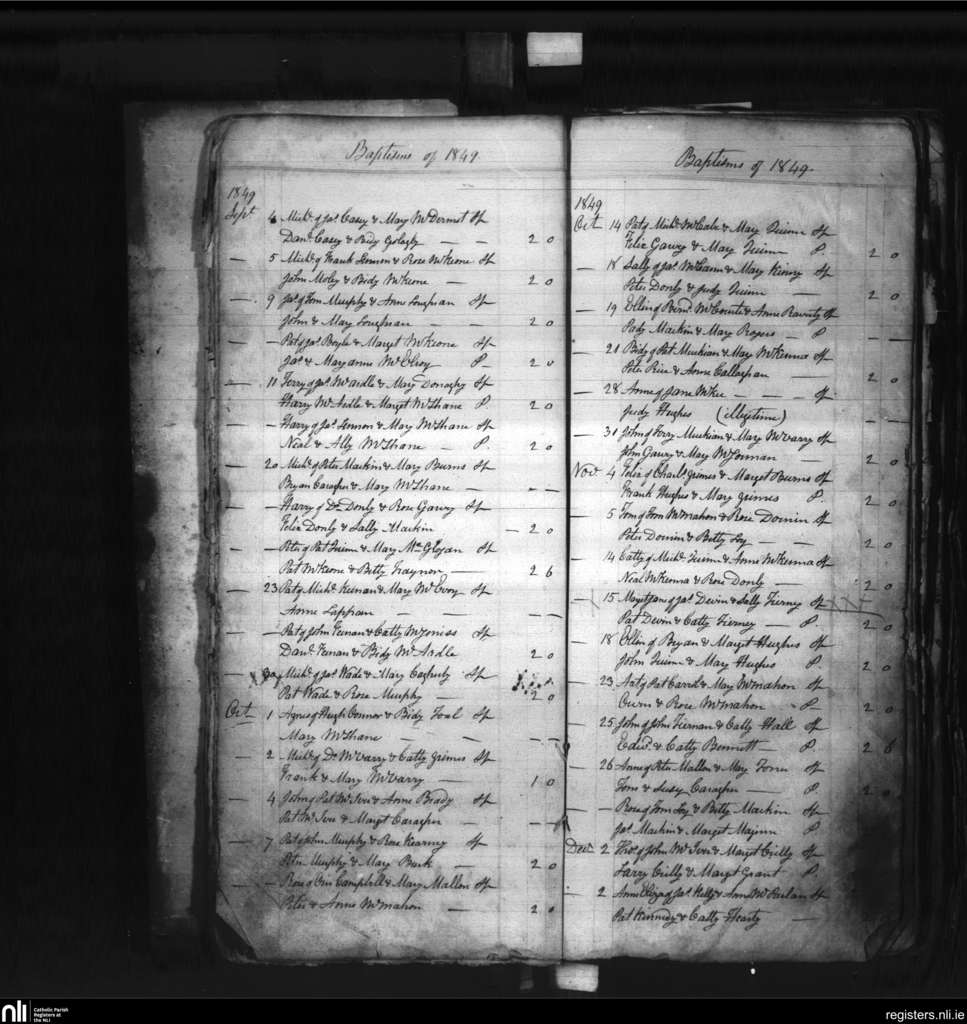 Baptisms of 1849
1849
Sept 4 Michl of Jas Casey & Mary McDermot Sp
Danl Casey & Bidy — — 2 0
— 5 Michl of Frank Lennon & Rose McKeone Sp
John Moley & Bidy McKeone — 2 0
— 9 Jas of Tom Murphy & Anne Loughran Sp
John & Mary Loughran — — 2 0
— — Pat of Jas Boyle & Marget McKeone Sp
Jas & Maryanne McElroy P. 2 0
— 11 Terry of Jas McArdle & Mary Donaghy Sp
Harry McArdle & Marget McShane P. 2 0
— Harry of Jas Lennon & Mary McShane Sp
Neal & Ally McShane — P. 2 0
— 20 Michl of Peter Mackin & Mary Burns Sp
Bryan Caragher & Mary McShane — — —
— Harry of Donly & Rose Garvy Sp
Felix Donly & Sally Mackin — 2 0
— — Peter of Pat Quinn & Mary Sp
Pat McKeone & Betty Traynor — 2 6
— 23 Pat of Michl Keenan & Mary McEvoy — Sp
Anne Lappan — — —
— — Pat of John Keenan & Catty Sp
Danl Keenan & Bidy McArdle 2 0
— 30 Michl of Jas Wade & Mary Sp
Pat Wade & Rose Murphy — 2 0
Oct 1 Agnes of Hugh Connor & Bidy Sp
Mary McShane — — —
— 2 Michl of McVarry & Catty Grimes Sp
Frank & Mary McVarry — — 1 0
— 4 John of Pat McIver & Anne Brady Sp
Pat McIver & Marget Caragher — — —
— 7 Pat of John Murphy & Rose Kearny Sp
Peter Murphy & Mary — 2 0
— Rose of Campbell & Mary Mallon Sp
Peter & Anne McMahon — 2 0
Baptisms of 1849.
1849
Oct 14 Pat of Michl McCabe & Mary Quinn Sp
Felix Garvy & Mary Quinn P. 2 0
— 18 Sally of Jas & Mary Sp
Peter Donly & Judy Quinn — 2 0
— 19 Ellen of Bernd & Anne Sp
Pady Mackin & Mary Rogers — P — —
— 21 Bidy of Pat Muckian & Mary McKenna Sp
Peter Rice & Anne Callaghan — 2 0
— 28 Anne of Jane McKee — — — Sp
Judy Hughes (illegitime)
— 31 John of Terry Muckian & Mary McVarry Sp
John Garvy & Mary — 2 0
Nov 4 Felix of Charls Grimes & Marget Burns Sp
Frank Hughes & Mary Grimes P. 2 0
— 5 Tom of Tom McMahon & Rose Sp
Peter & Betty — — 2 0
— 14 Catty of Michl Quinn & Anne McKenna Sp
Neal McKenna & Rose Donly — 2 0
— 15 of Jas Devin & Sally Tierney Sp
Pat Devin & Catty Tierney — P. 2 0
— 18 Ellen of Bryan & Marget Hughes Sp
John Quinn & Mary Hughes P. 2 0
— 23 Art of Pat Carrol & Mary McMahon Sp
Owen & Rose McMahon P. 2 0
— 25 John of John Tiernan & Catty Hall Sp
Edwd & Catty Bennett — P. 2 6
— 26 Anne of Peter Mallon & Mary Sp
Tom & Susy Caragher — P. 2 0
— — Rose of Tom & Betty Mackin Sp
Jas Mackin & Marget Maginn P.
Decr 2 Thos of John McIver & Marget Crilly Sp
Larry Crilly & Marget Grant P.
— 2 Anne Eliza of Jas Kelly & Anne McParlan Sp
Pat Kennedy & Catty Hearty —
nli Catholic Parish
Registers at
the NLI
registers.nli.ie